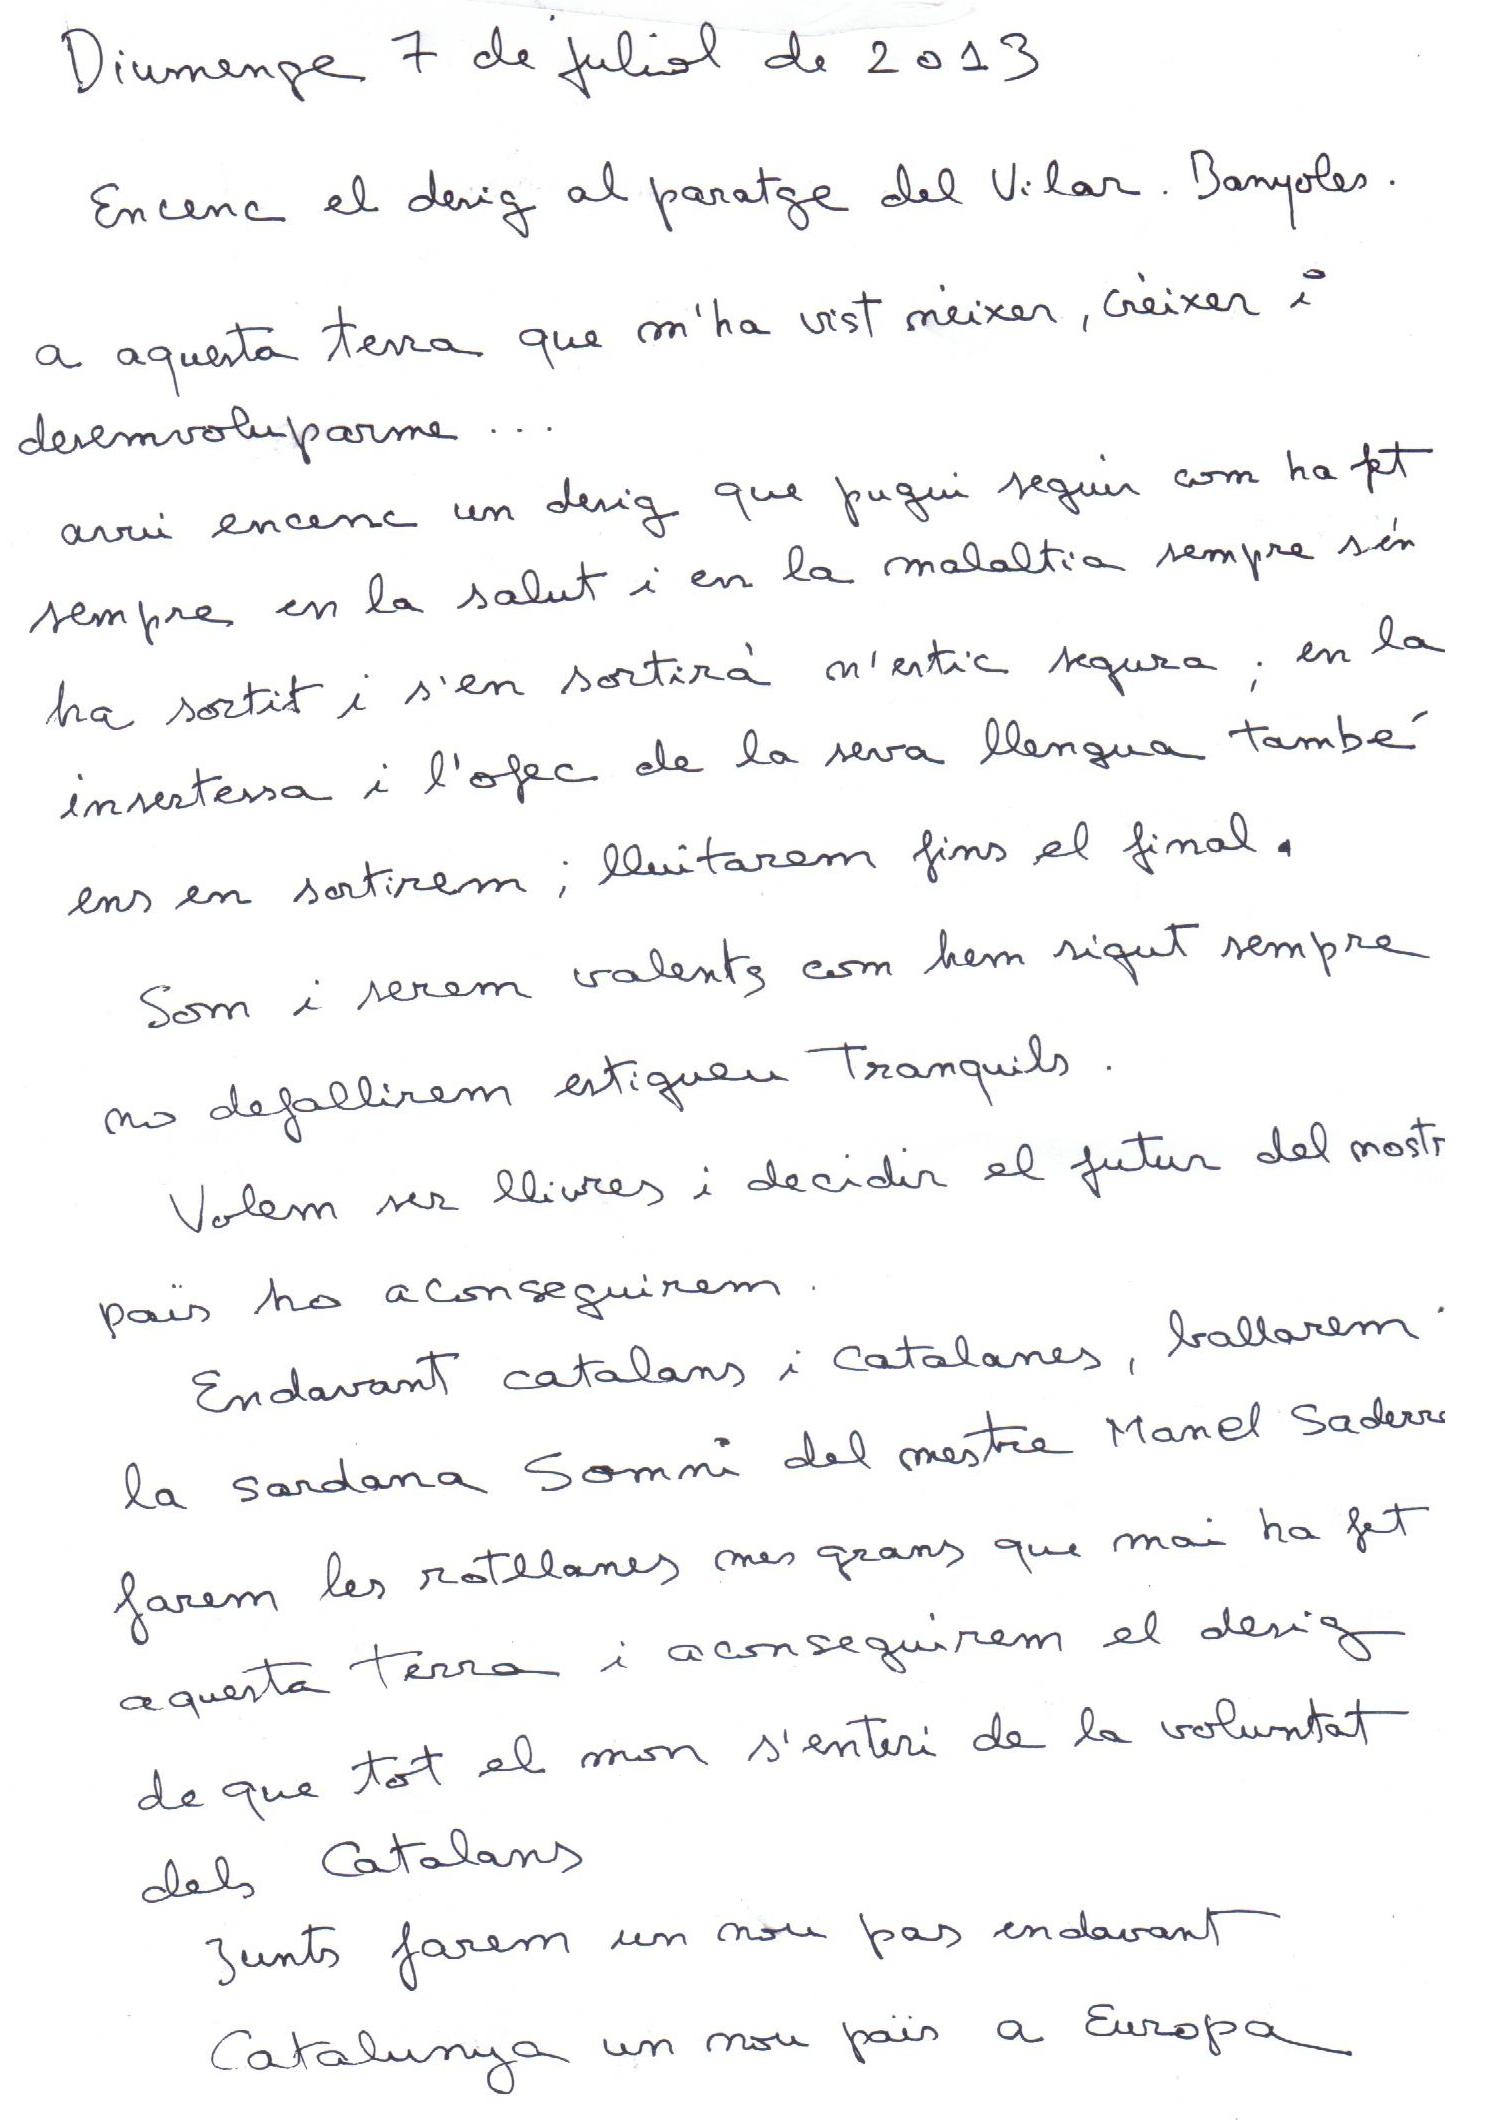 Diumenge 7 de juliol de 2013
Encenc el desig al paratge del Vilar. Banyoles.
a aquesta terra que m'ha vist nèixer, crèixer i
desemvoluparme ...
avui encenc un desig que pugui seguir com ha fet
sempre en la salut i en la malaltia sempre s'én
ha sortit i s'en sortirà n'estic segura; en la
insertessa i l'ofec de la seva llengua també
ens en sortirem; lluitarem fins el final.
Som i serem valents com hem sigut sempre
no defallirem estigueu tranquils.
Volem ser lliures i decidir el futur del nostr
païs ho aconseguirem.
Endavant catalans i catalanes, ballarem
la sardana Somni del mestre Manel Saderra
farem les rotllanes mes grans que mai ha fet
aquesta terra i aconseguirem el desig
de que tot el mon s'enteri de la voluntat
dels Catalans
Junts farem un nou pas endavant
Catalunya un nou païs a Europa